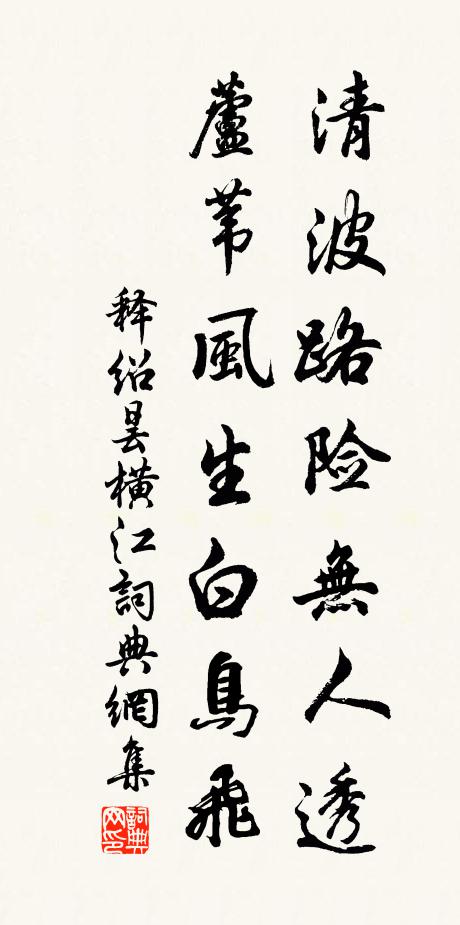 清波路险無人透
蘆苇風生白鳥飛
释绍昙横江詞典網集
詞典网印